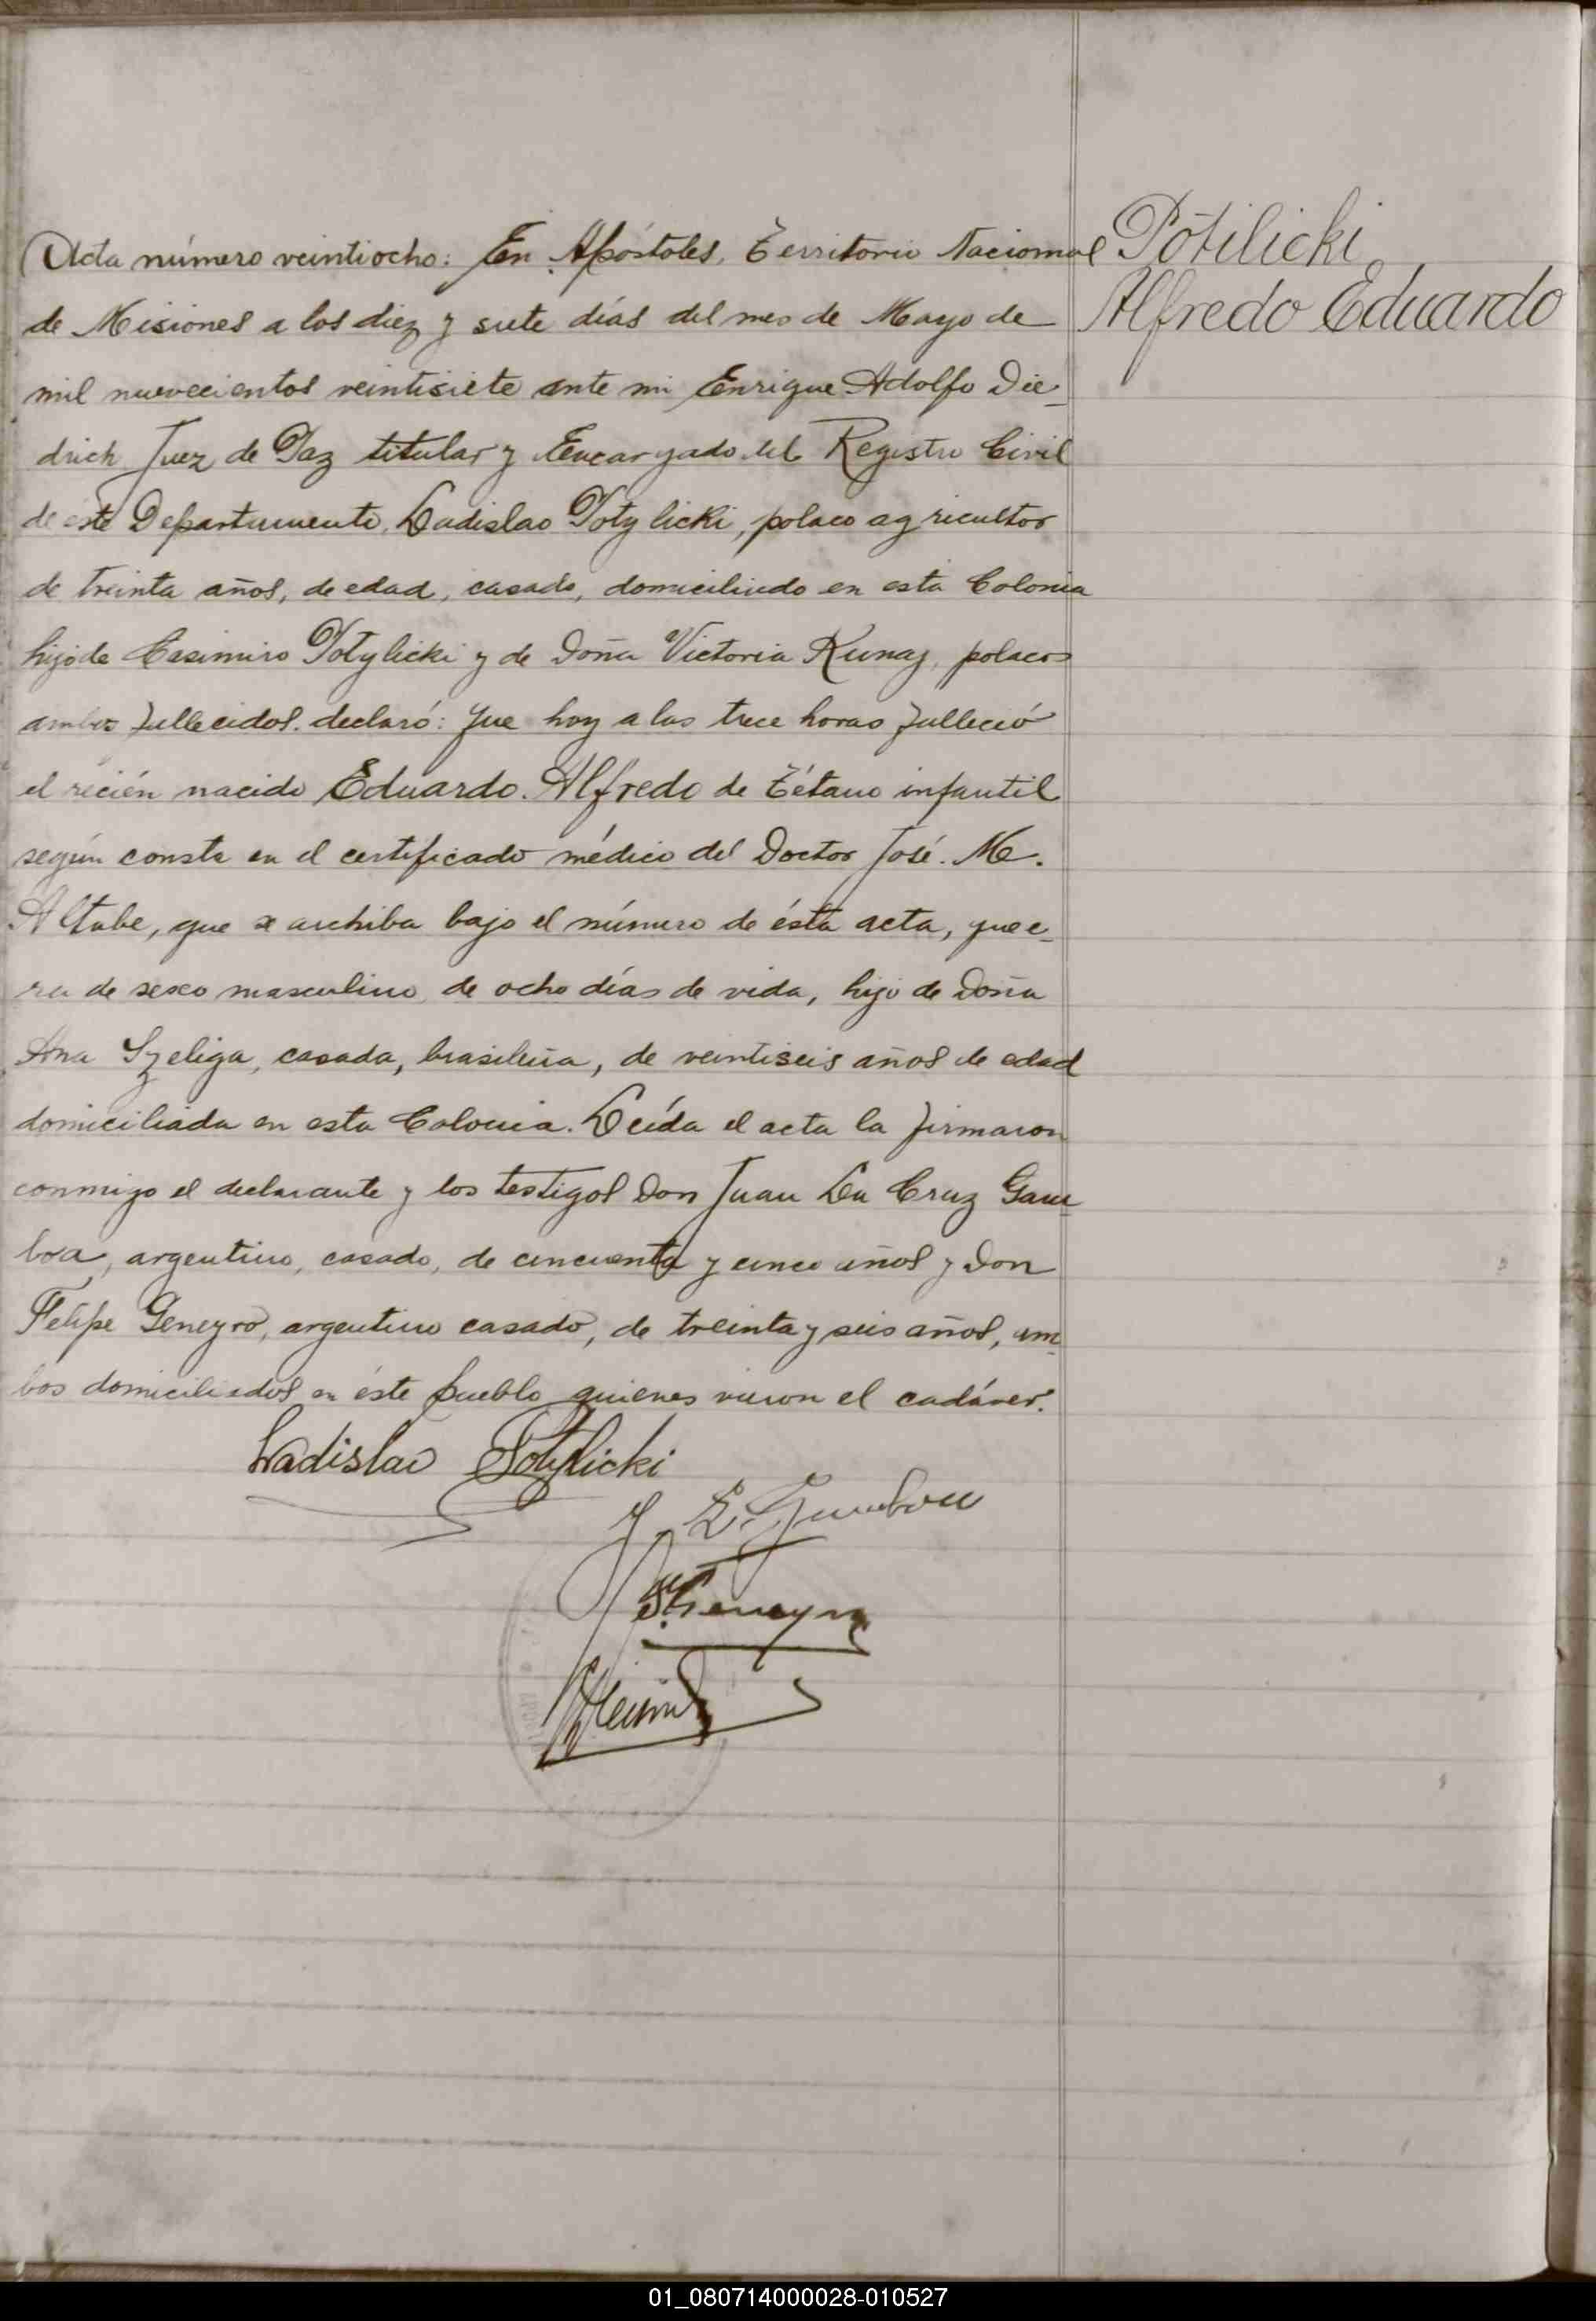 Potilicki
Alfredo Eduardo
Acta número veintiocho: En Apóstoles, Territorio Nacional
de Misiones a los diez y siete días del mes de Mayo de
mil nuevecientos veintisiete ante mi Enrique Adolfo Die-
drich Juez de Paz titular y Encargado del Registro Civil
de éste Departamento, Ladislao Potylicki, polaco agricultor
de treinta años, de edad, casado, domiciliado en esta Colonia
hijo de Casimiro Potylicki y de Doña Victoria Kunaz, polacos
ambos fallecidos. declaró: Que hoy a las trece horas falleció
el recién nacido Eduardo Alfredo de Tétano infantil
según consta en el certificado médico del Doctor José. M.
Altube, que se archiba bajo el número de ésta acta, que e-
ra de sexo masculino, de ocho días de vida, hijo de Doña
Ana Szeliga, casada, brasileña, de veintiseis años de edad
domiciliada en esta Colonia. Leída el acta la firmaron
conmigo el declarante y los testigos Don Juan La Cruz Gam-
boa, argentino, casado, de cincuenta y cinco años y Don
Felipe Geneyro, argentino casado, de treinta y seis años, am-
bos domiciliados en éste pueblo quienes vieron el cadáver.
Ladislao Potylicki
Geneyro
01_080714000028-010527